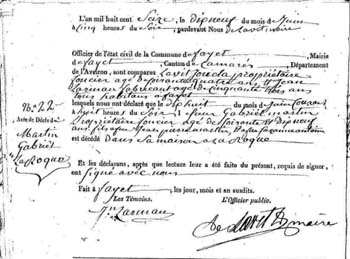 L'an mil huit cent Seize, le dixneuf du mois de Juin
à Cinq heures du Soir, pardevant Nous de Lavit maire
Officier de l'état civil de la Commune de fayet, Mairie
de fayet, Canton de Camarés, Département
de l'Aveyron, sont comparus Lavit propriétaire
foncier age de Soixante quatre ans et Jean
Larman fabricant age de Cinquante trois ans
tous habitans a fayet
lesquels nous ont déclaré que le dixhuit du mois de Juin
à huit heures du Soir Sieur Gabriel Martin
Propriétaire foncier age de Soixante et Dixneuf
ans fils de feu Jean Martin
est décédé Dans sa maison a La Roque
N.º 22
Acte de Décès de
Martin
Gabriel
La Roque
Et les déclarans, après que lecture leur a été faite du présent, requis de signer,
ont Signé avec nous
Fait à fayet, les jour, mois et an susdits.
Les Témoins. L'Officier public.
Jn Larman
de Lavit maire